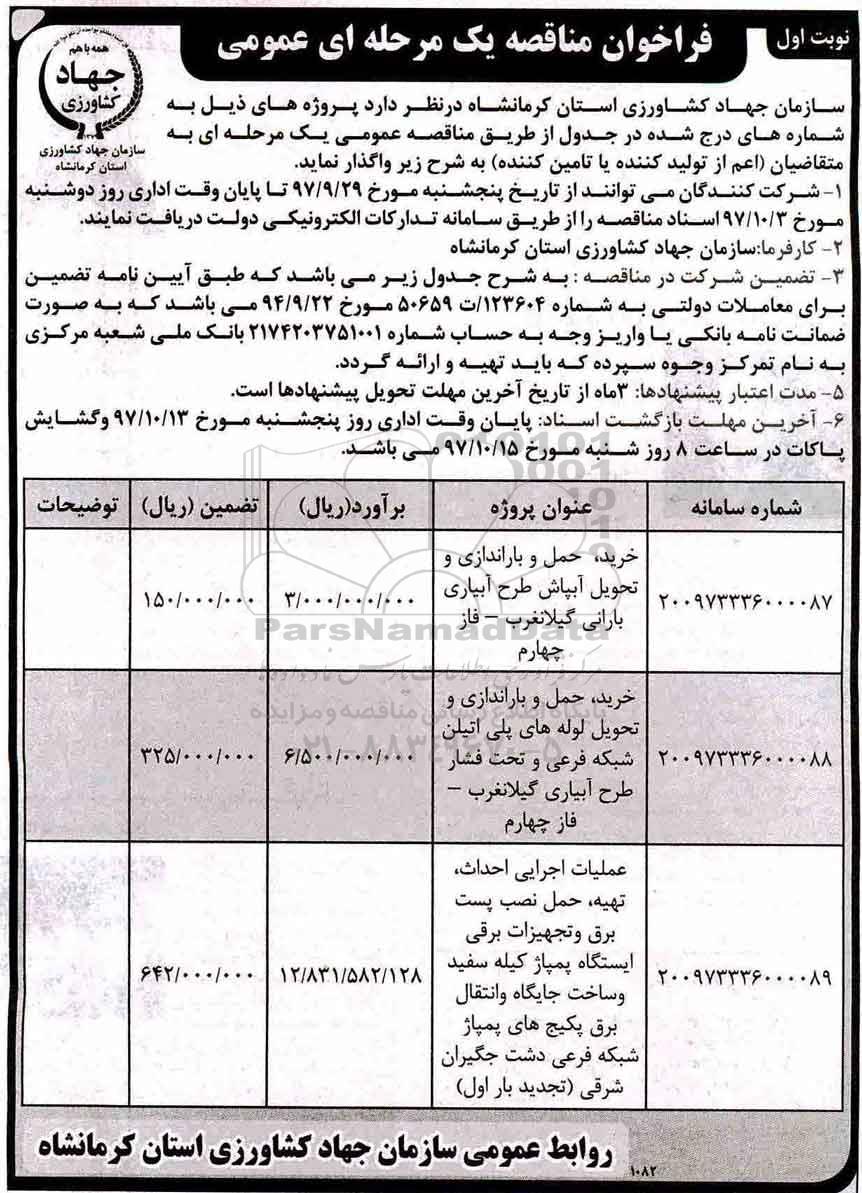 نوبت اول
فراخوان مناقصه یک مرحله ای عمومی
همه با هم
جهاد
کشاورزی
سازمان جهاد کشاورزی
استان کرمانشاه
سازمان جهاد کشاورزی استان کرمانشاه درنظر دارد پروژه های ذیل به
شماره های درج شده در جدول از طریق مناقصه عمومی یک مرحله ای به
متقاضیان (اعم از تولید کننده یا تامین کننده) به شرح زیر واگذار نماید.
۱- شرکت کنندگان می توانند از تاریخ پنجشنبه مورخ ۹۷/۹/۲۹ تا پایان وقت اداری روز دوشنبه
مورخ ۹۷/۱۰/۳ اسناد مناقصه را از طریق سامانه تدارکات الکترونیکی دولت دریافت نمایند.
۲- کارفرما:سازمان جهاد کشاورزی استان کرمانشاه
۳- تضمین شرکت در مناقصه : به شرح جدول زیر می باشد که طبق آیین نامه تضمین
برای معاملات دولتی به شماره ۱۲۳۶۰۴/ت ۵۰۶۵۹ مورخ ۹۴/۹/۲۲ می باشد که به صورت
ضمانت نامه بانکی یا واریز وجه به حساب شماره ۲۱۷۴۲۰۳۷۵۱۰۰۱ بانک ملی شعبه مرکزی
به نام تمرکز وجوه سپرده که باید تهیه و ارائه گردد.
۵- مدت اعتبار پیشنهادها: ۳ماه از تاریخ آخرین مهلت تحویل پیشنهادها است.
۶- آخرین مهلت بازگشت اسناد: پایان وقت اداری روز پنجشنبه مورخ ۹۷/۱۰/۱۳ وگشایش
پاکات در ساعت ۸ روز شنبه مورخ ۹۷/۱۰/۱۵ می باشد.
شماره سامانه عنوان پروژه برآورد(ریال) تضمین (ریال) توضیحات
خرید، حمل و باراندازی و
تحویل آبپاش طرح آبیاری
بارانی گیلانغرب – فاز
چهارم
۲۰۰۹۷۳۳۳۶۰۰۰۰۸۷ ۳/۰۰۰/۰۰۰/۰۰۰ ۱۵۰/۰۰۰/۰۰۰
خرید، حمل و باراندازی و
تحویل لوله های پلی اتیلن
شبکه فرعی و تحت فشار
طرح آبیاری گیلانغرب –
فاز چهارم
۲۰۰۹۷۳۳۳۶۰۰۰۰۸۸ ۶/۵۰۰/۰۰۰/۰۰۰ ۳۲۵/۰۰۰/۰۰۰
عملیات اجرایی احداث،
تهیه، حمل نصب پست
برق وتجهیزات برقی
ایستگاه پمپاژ کیله سفید
وساخت جایگاه وانتقال
برق پکیج های پمپاژ
شبکه فرعی دشت جگیران
شرقی (تجدید بار اول)
۲۰۰۹۷۳۳۳۶۰۰۰۰۸۹ ۱۲/۸۳۱/۵۸۲/۱۲۸ ۶۴۲/۰۰۰/۰۰۰
ParsNamadData
پایگاه اطلاع رسانی مناقصه و مزایده
روابط عمومی سازمان جهاد کشاورزی استان کرمانشاه
۱۰۸۲